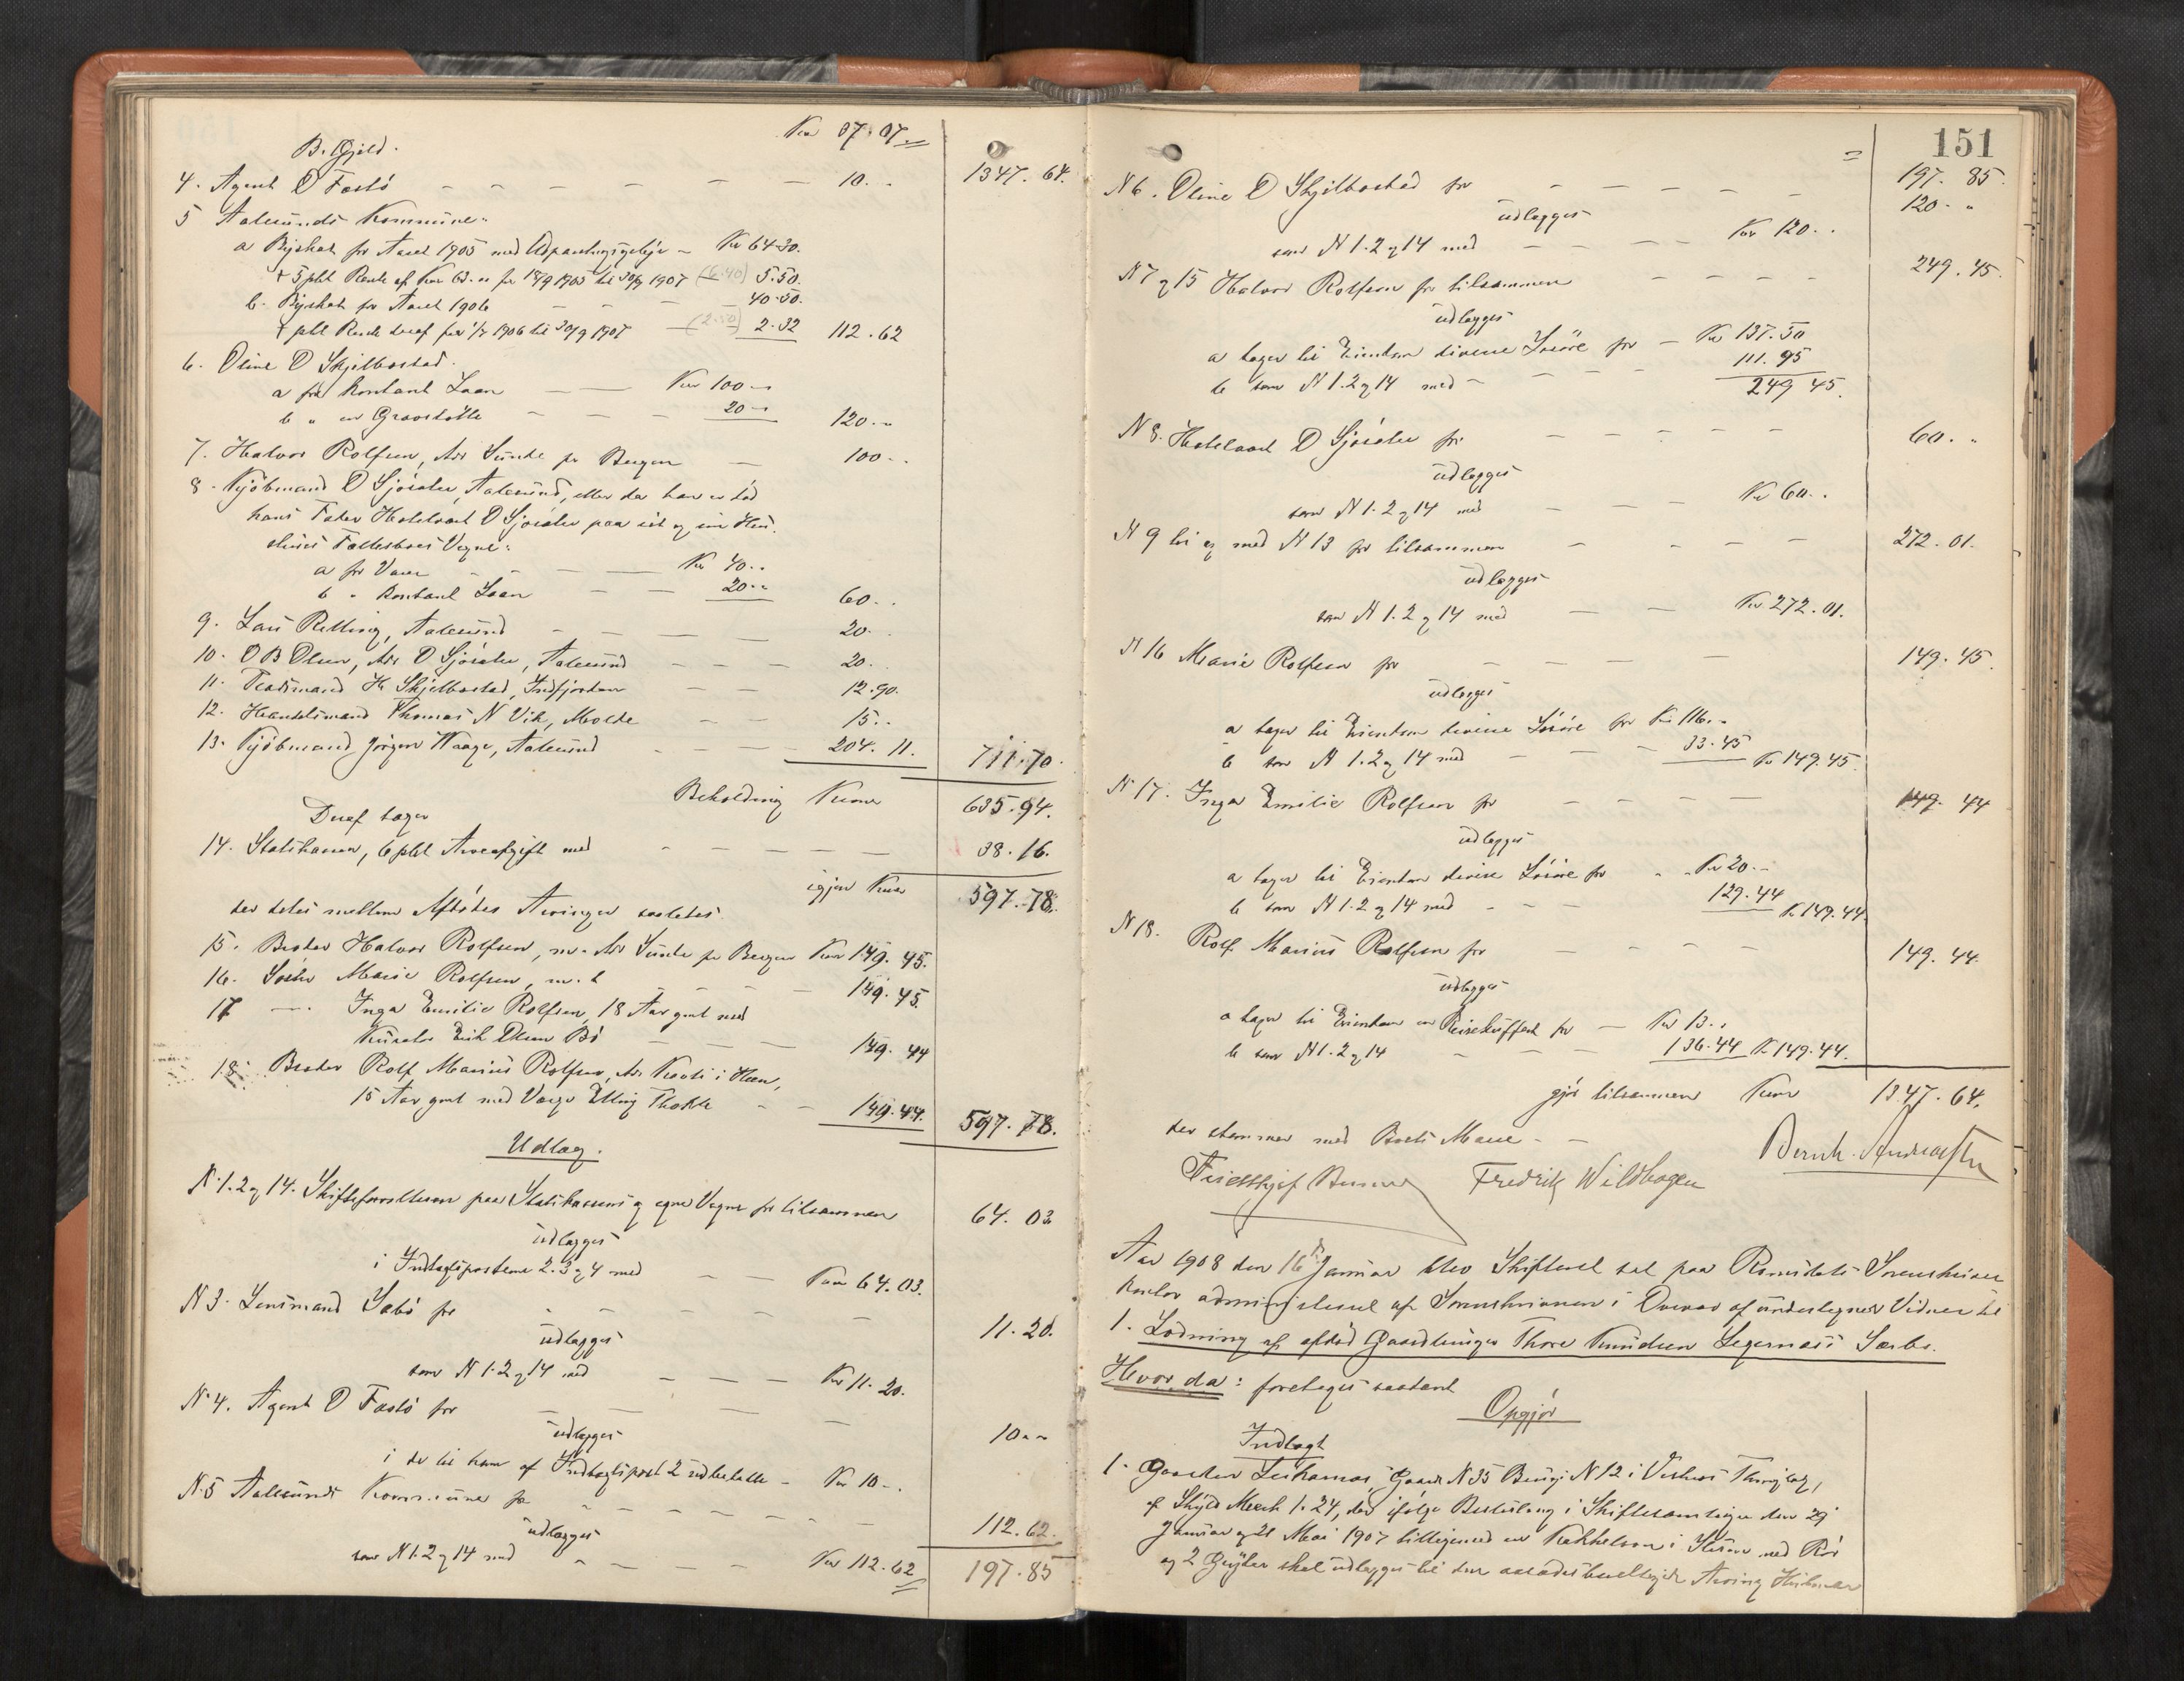 Kr 37.07
B. Gjeld.
1347.64.
4. Agent O Fastö — — — — — — 10..
5 Aalesunds Kommune:
a Byskat for Aaret 1905 med Udpantningsgebyr – Kr 64.30.
+ 5 pCt Rente af Kr 63.00 fra 18/9 1905 til 30/9 1907 (6.40) 5.50.
b. Byskat for Aaret 1906 — — — 40.50.
+ pCt Rente deraf fra 1/7 1906 til 30/9 1907 — (2.50) 2.32 112.62
6. Oline O Skjelbostad.
a for kontant Laan — — Kr 100..
b " en Gravstøtte — — — 20.. 120..
7. Halvor Rolfsen, Adr Sunde pr Bergen — 100..
8. Kjöbmand O Sjöholm, Aalesund, eller da han er död
hans Fader Hotelvert O Sjöholm paa sit og sin Hu-
strues Fællesboes Vegne:
a for Varer — — — Kr 40..
b " Kontant Laan — — 20.. 60..
9. Lars Relling, Aalesund — — — — 20..
10. O B Olsen, Adr O Sjöholm, Aalesund — — — 20..
11. Pladsmand K Skjelbostad, Indfjorden — — 12.90.
12. Handelsmand Thomas N Vik, Molde — — 15..
13. Kjöbmand Jörgen Waage, Aalesund — — — 204.11. 711.70.
Beholdning Kroner 635.94.
Deraf tages
14. Statskassen, 6 pCt Arveafgift med — — — — — 38.16.
igjen Kroner 597.78.
der deles mellem Afdödes Arvinger saaledes.
15. Broder Halvor Rolfsen, m. Adr Sunde pr Bergen Kroner 149.45.
16. Söster Marie Rolfsen, m. — — — 149.45.
17 —. Inga Emilie Rolfsen, 18 Aar gml med
Kurator Erik Olsen Bö — — — 149.44
18. Broder Rolf Marius Rolfsen, Adr i Heen,
15 Aar gml med Værge Elling Thokle — — 149.44. 597.78.
Udlæg.
N. 1. 2 og 14. Skifteforvalteren paa Statskassens og egne Vegne for tilsammen 64.03
udlægges
i Indtægtsposterne 2. 3 og 4 med — — Kroner 64.03.
N 3. Lensmand Sæbö for — — — — — 11.20.
udlægges
som N 1. 2 og 14 med — — — Kr 11.20.
N. 4. Agent O Fastö for — — — — 10..
udlægges
i de til ham af Indtægtspost 2 udbetalte – Kr 10..
N. 5 Aalesunds Kommune for — — — — — 112.62.
udlægges
som N 1. 2 og 14 med — — — — Kr 112.62
197.85
151
197.85.
N 6. Oline O Skjelbostad for — — — — — 120. "
udlægges
som N 1. 2 og 14 med — — — — Kr 120..
N 7 og 15 Halvor Rolfsen for tilsammen — — — — 249.45.
udlægges
a tager til Eiendom diverse Lösöre for — Kr 137.50
b som N 1. 2 og 14 med — — — — 111.95
249 45.
N 8. Hotelvert O Sjöholm for — — — — — 60. "
udlægges
som N 1. 2 og 14 med — — — Kr 60..
N 9 til og med N 13 for tilsammen — — — — 272.01.
udlægges
som N 1. 2 og 14 med — — Kr 272.01.
N 16 Marie Rolfsen for — — — — — 149.45.
udlægges
a tager til Eiendom diverse Lösöre for Kr 116..
b som N 1. 2 og 14 med — — — 33.45 Kr 149.45.
N 17. Inga Emilie Rolfsen for — — — — — 149. 44
udlægges
a tager til Eiendom diverse Lösöre for – – Kr 20..
b som N 1. 2 og 14 med – – — 129.44 Kr 149.44.
N 18. Rolf Marius Rolfsen for — — — — 149.44.
udlægges
a tager til Eiendom en Reisekuffert for — Kr 13..
b som N 1. 2 og 14 — — — 136.44 Kr 149.44.
gjör tilsammen Kroner 1347.64.
der stemmer med Boets Masse – –
Bernh.
Fredrik Wildhagen
Aar 1908 den 16de Januar blev Skifteret sat paa Romsdals Sorenskriver
kontor administreret af Sorenskriveren i Overvær af undertegnede Vidner til
1. Lodning af afdöd Gaardbruger Thore Knudsen Legernæss Særbo.
Hvor da: foretoges saadant
Opgjör
Indtægt
1. Gaarden Leikarnæs, Gaards N 35 Brugs N 12 i Thinglag,
af Skyld Mark 1.24, der ifölge Beslutning i Skiftesamlinger den 29
Januar og 21 Mai 1907 tilligemed en Kakkelovn i Stuen med Rör
og 2 Gryder skal udlægges til den Arving